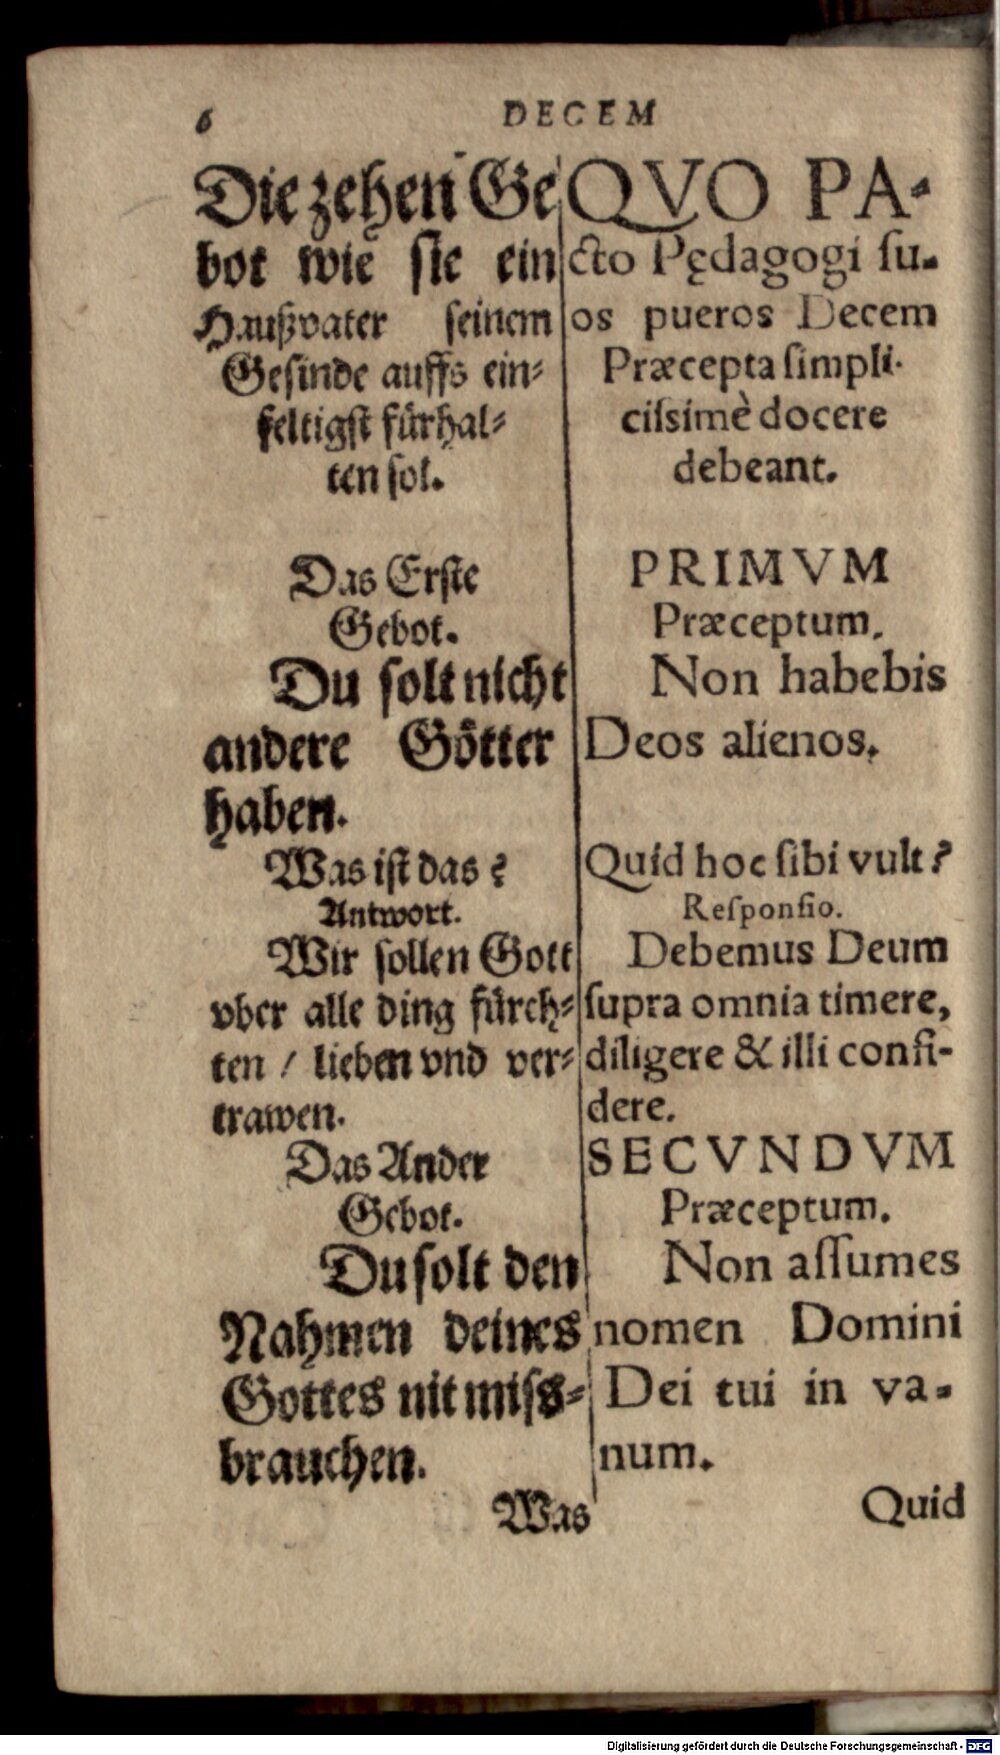 6 DECEM
Die zehen Ge
bot wie sie ein
Haußvater seinem
Gesinde auffs ein⸗
feltigst fuͤrhal⸗
ten sol.
Das Erste
Gebot.
Du solt nicht
andere Goͤtter
haben.
Was ist das?
Antwort.
Wir sollen Gott
vber alle ding fuͤrch⸗
ten / lieben vnd ver⸗
trawen.
Das Ander
Gebot.
Du solt den
Nahmen deines
Gottes nit miss⸗
brauchen.
Was
QVO PA-
cto Pędagogi ſu-
os pueros Decem
Præcepta ſimpli-
ciſsimè docere
debeant.
PRIMVM
Præceptum.
Non habebis
Deos alienos.
Quid hoc ſibi vult?
Reſponſio.
Debemus Deum
ſupra omnia timere,
diligere & illi confi-
dere.
SECVNDVM
Præceptum.
Non aſſumes
nomen Domini
Dei tui in va-
num.
Quid
Digitalisierung gefördert durch die Deutsche Forschungsgemeinschaft - DFG